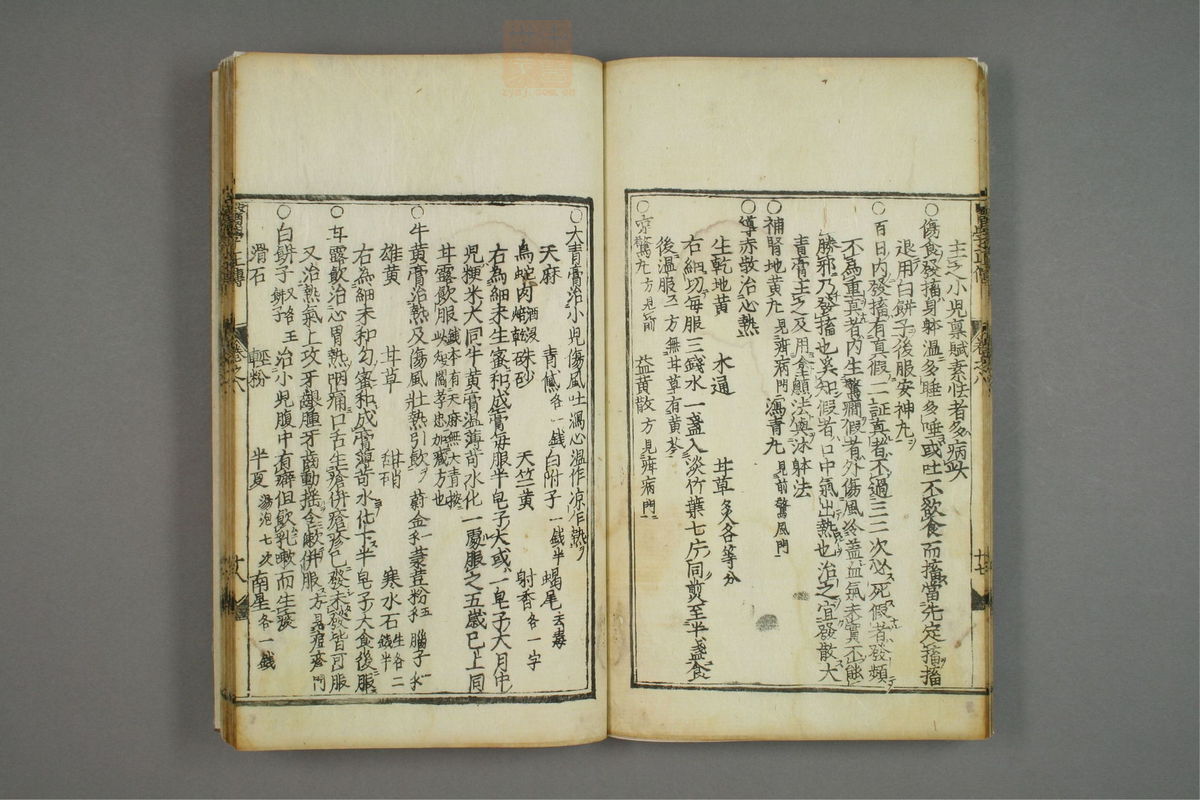 主之小兒稟賦素怯者多病此
○傷食發搐身躰温多睡多唾或吐不欲食而搐當先定搐搐
退用白餅子後服安神丸
○百日內發搐有真假二証真者不過三二次必死假者發頻
不為重真者內生驚癎假者外傷風冷蓋血氣未實不能
勝邪乃發搐也欲知假者口中氣出熱也治之宜發散大
青膏主之及用塗顖法浴躰法
○補腎地黃丸 見疳病門 瀉青丸 見前驚風門
○導赤散治心熱
生乾地黃 木通 甘草炙各等分
右細切每服三錢水一盞入淡竹葉七片同煎至半盞食
後温服又一方無甘草有黃芩
○涼驚丸方見前 益黃散方見疳病門
醫學正傳 卷之八 廿七
○大青膏治小兒傷風吐瀉心温作凉乍熱
天麻 青黛各一錢 白附子一錢半 蝎尾去毒
烏蛇肉酒浸焙乾 硃砂 天竺黃 射香各一字
右為細末生蜜和成膏每服半皂子大或一皂子大月中
兒粳米大同牛黃膏温薄荷水化一處服之五歲已上同
甘露飲服錢本有天麻無大青
○牛黃膏治熱及傷風壯熱引飲
雄黃 甘草 甜硝 寒水石生各二錢半 欝金 菉荳粉 腦子
右為細末和勻蜜和成膏薄荷水化下半皂子大食後服
○甘露飲治心胃熱咽痛口舌生瘡併瘡疹已發未發皆可服
又治熱氣上攻牙齦腫牙齒動搖令嗽併服方見痘疹門
○白餅子又名玉餅子 治小兒腹中有癖但飲乳嗽而生痰
滑石 輕粉 半夏湯泡七次 南星各一錢
醫學正傳 卷之八 廿八